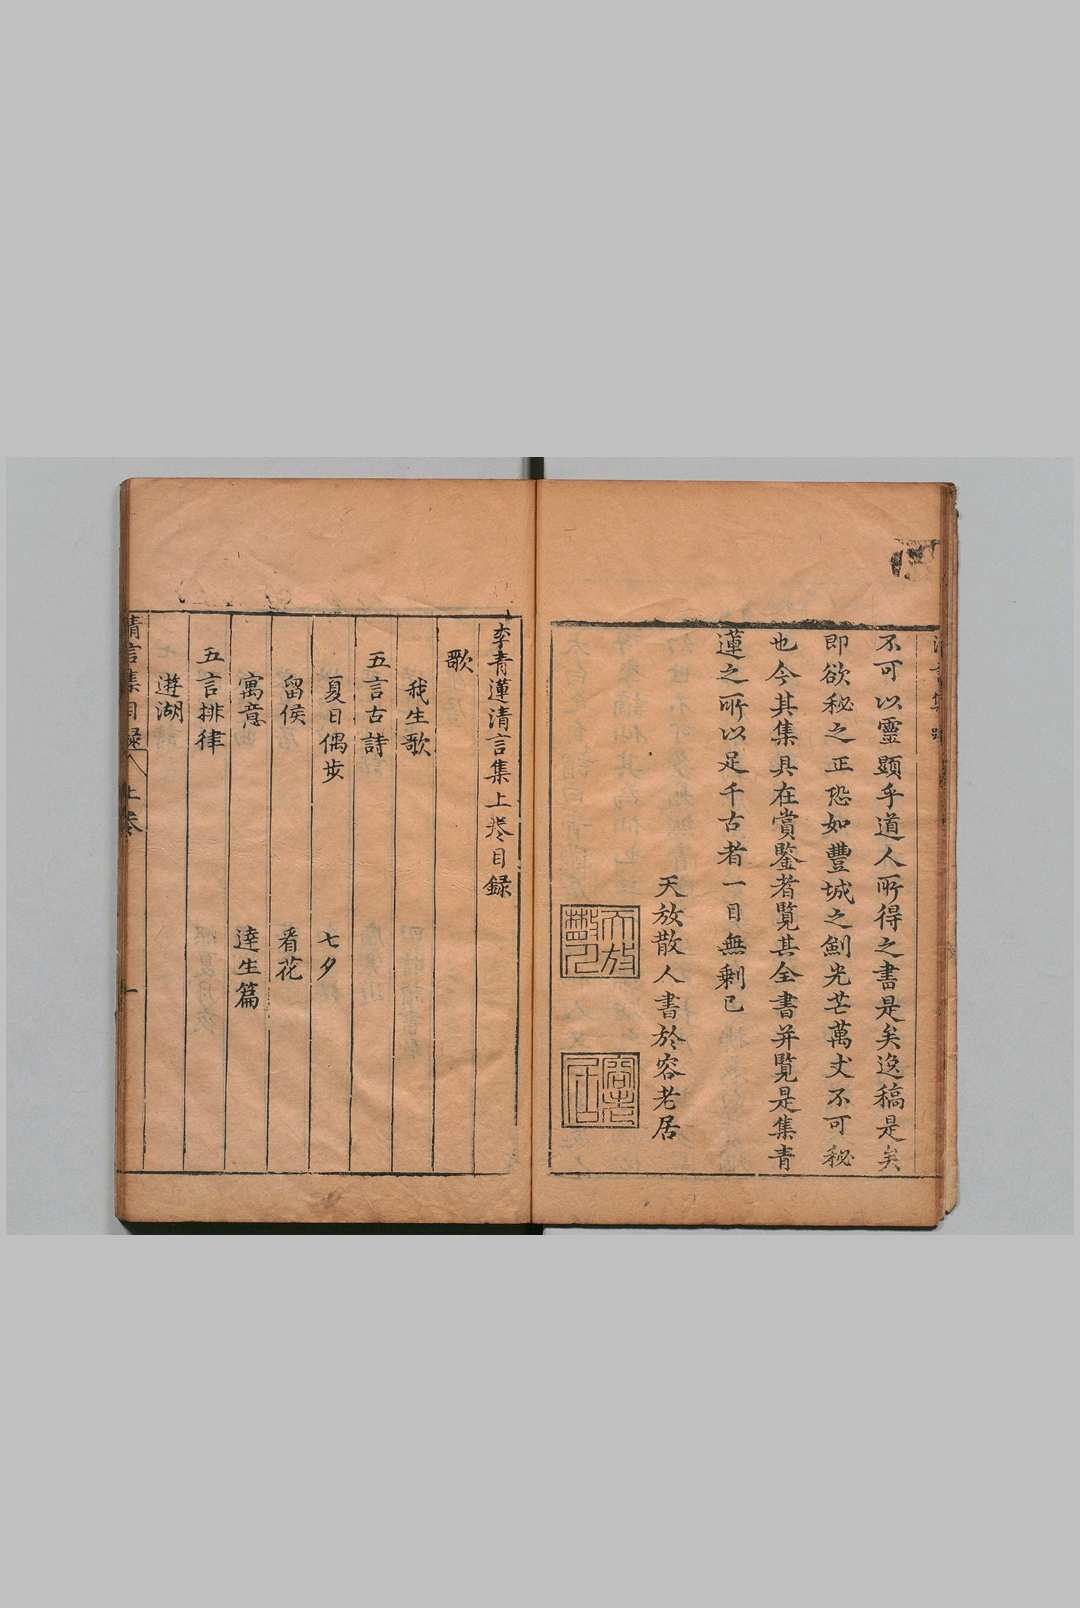 不可以靈顕乎道人所得之書是矣逸稿是矣
即欲秘之正恐如豐城之劍光芒萬丈不可秘
也今其集具在賞鑒者覧其全書并覧是集青
蓮之所以足千古者一目無剩已
天放散人書於容老居
天放散人
容老居
李青蓮清言集上卷目録
歌
我生歌
五言古詩
夏日偶步
七夕
留侯
看花
寓意
達生篇
五言排律
遊湖
清言集目録
上卷
一